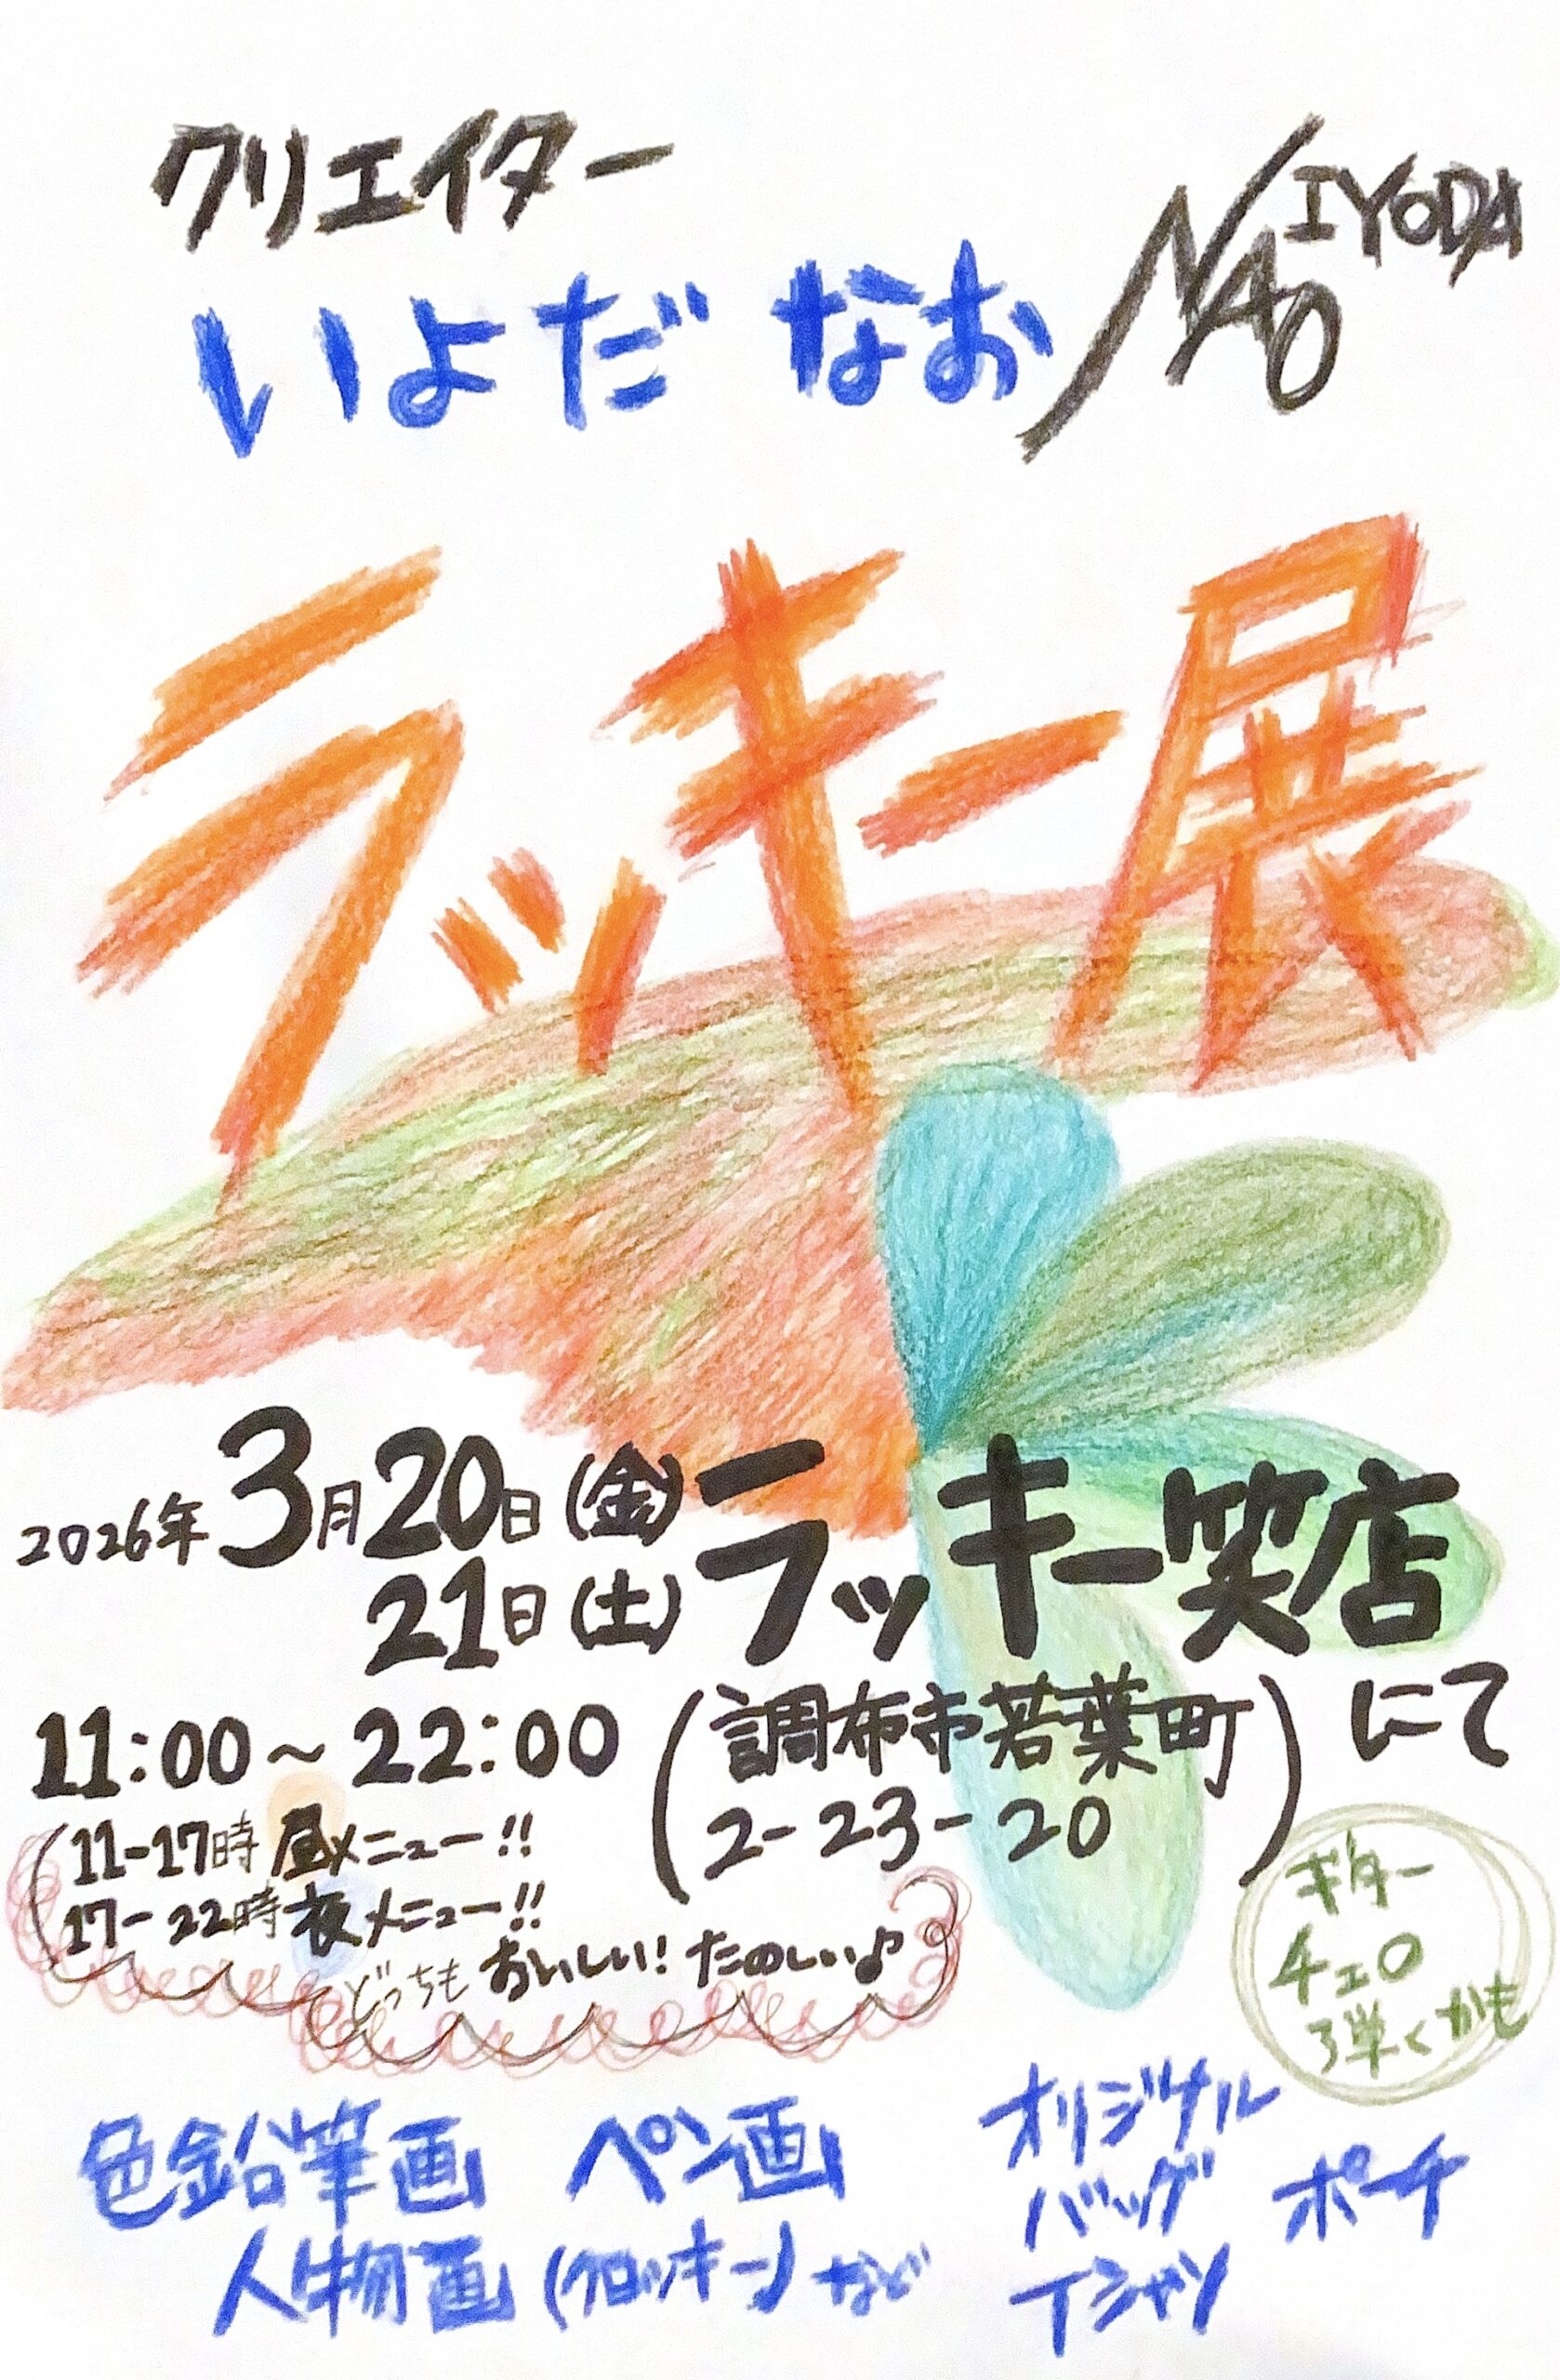 クリエイター
いよだ なお
NAO IYODA
ラッキー展
2026年3月20日(金)
21日(土)
ラッキー笑店
(調布市若葉町
2-23-20)
にて
11:00~22:00
(11-17時 昼メニュー!!
17-22時 夜メニュー!!
どっちも おいしい! たのしい♪
ギター
チェロ
弾くかも
色鉛筆画 ペン画
人物画(クロッキー)など
オリジナル
バッグ ポーチ
Tシャツ